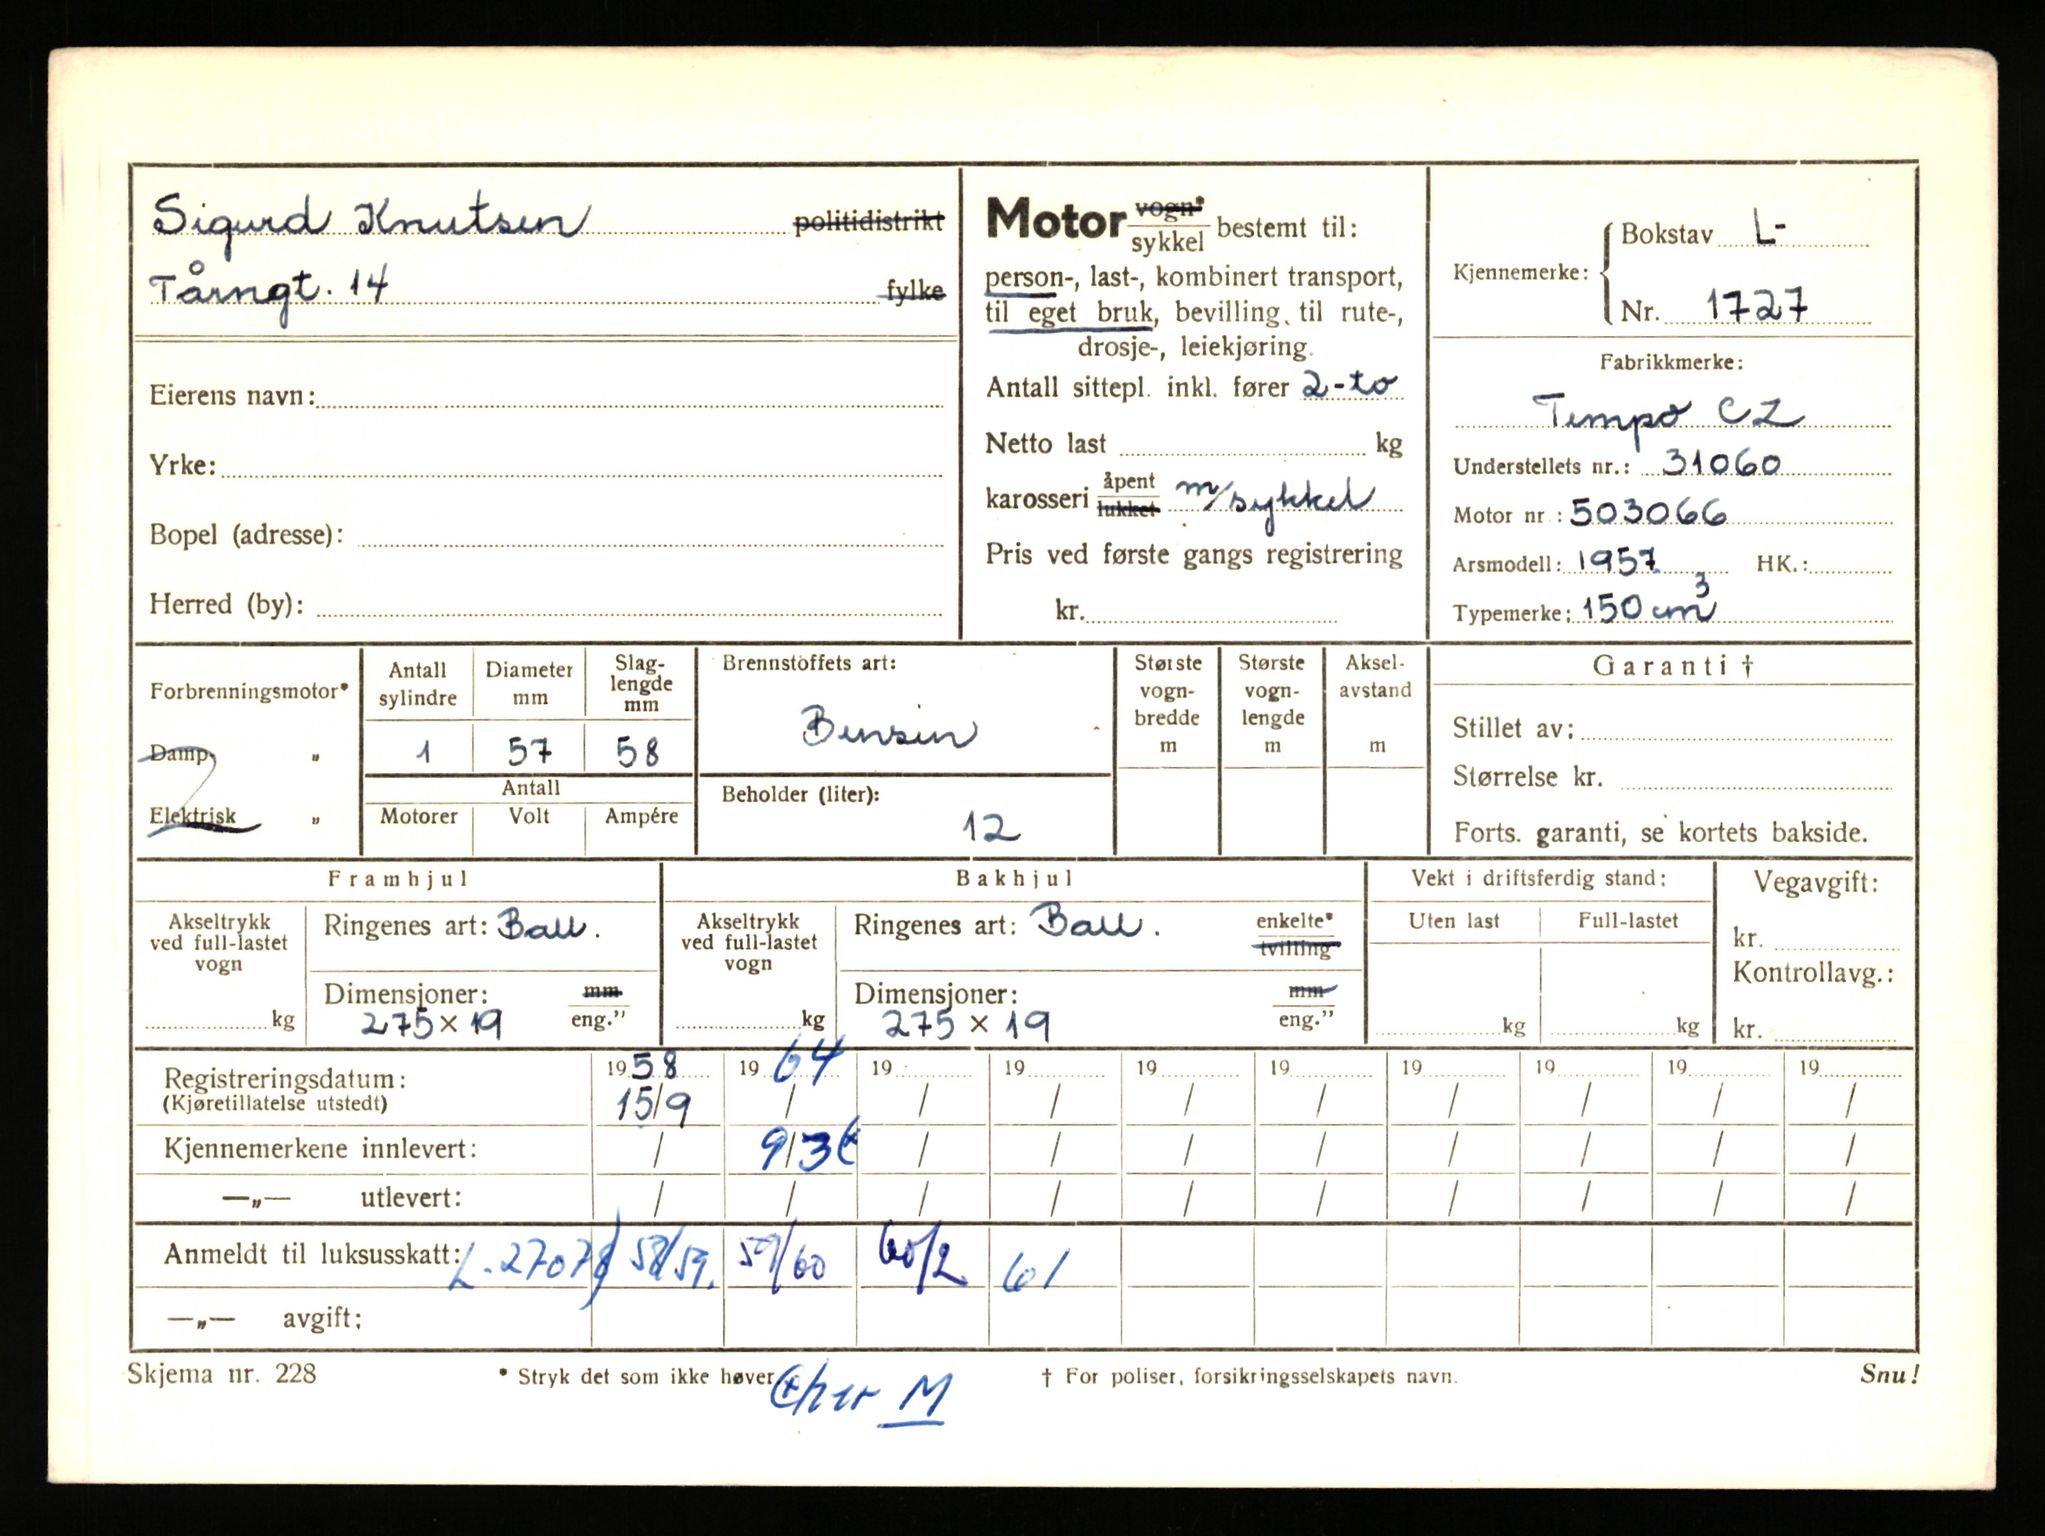 Sigurd Knutsen politidistrikt
Tårngt. 14 fylke
Eierens navn:
Yrke:
Bopel (adresse):
Herred (by):
Motor vogn* sykkel bestemt til:
person-, last-, kombinert transport,
til eget bruk, bevilling til rute-,
drosje-, leiekjøring.
Antall sittepl. inkl. fører 2-to
Netto last kg
karosseri åpent lukket m/sykkel
Pris ved første gangs registrering
kr.
Kjennemerke: Bokstav L-
Nr. 1727
Fabrikkmerke:
Tempo CZ
Understellets nr.: 31060
Motor nr.: 503066
Arsmodell: 1957 HK.:
Typemerke: 150 cm³
Forbrenningsmotor*
Damp „
Elektrisk „
Antall sylindre
Diameter mm
Slag-lengde mm
1 57 58
Antall
Motorer Volt Ampére
Brennstoffets art:
Bensin
Beholder (liter):
12
Største vogn-bredde m
Største vogn-lengde m
Aksel-avstand m
Garanti †
Stillet av:
Størrelse kr.
Forts. garanti, se kortets bakside.
Framhjul
Akseltrykk ved full-lastet vogn
kg
Ringenes art: Ball.
Dimensjoner: mm eng."
275 x 19
Bakhjul
Akseltrykk ved full-lastet vogn
kg
Ringenes art: Ball. enkelte* tvilling
Dimensjoner: mm eng."
275 x 19
Vekt i driftsferdig stand:
Uten last Full-lastet
kg kg
Vegavgift:
kr.
Kontrollavg.:
kr.
Registreringsdatum: 1958 1964 19 19 19 19 19 19 19 19
(Kjøretillatelse utstedt) 15/9 / / / / / / / / /
Kjennemerkene innlevert: / 9/3 / / / / / / / /
—„— utlevert: / / / / / / / / / /
Anmeldt til luksusskatt: L-27078 58/59. 59/60 60/2 61
—„— avgift:
Skjema nr. 228 * Stryk det som ikke høver † For poliser, forsikringsselskapets navn. Snu!
M